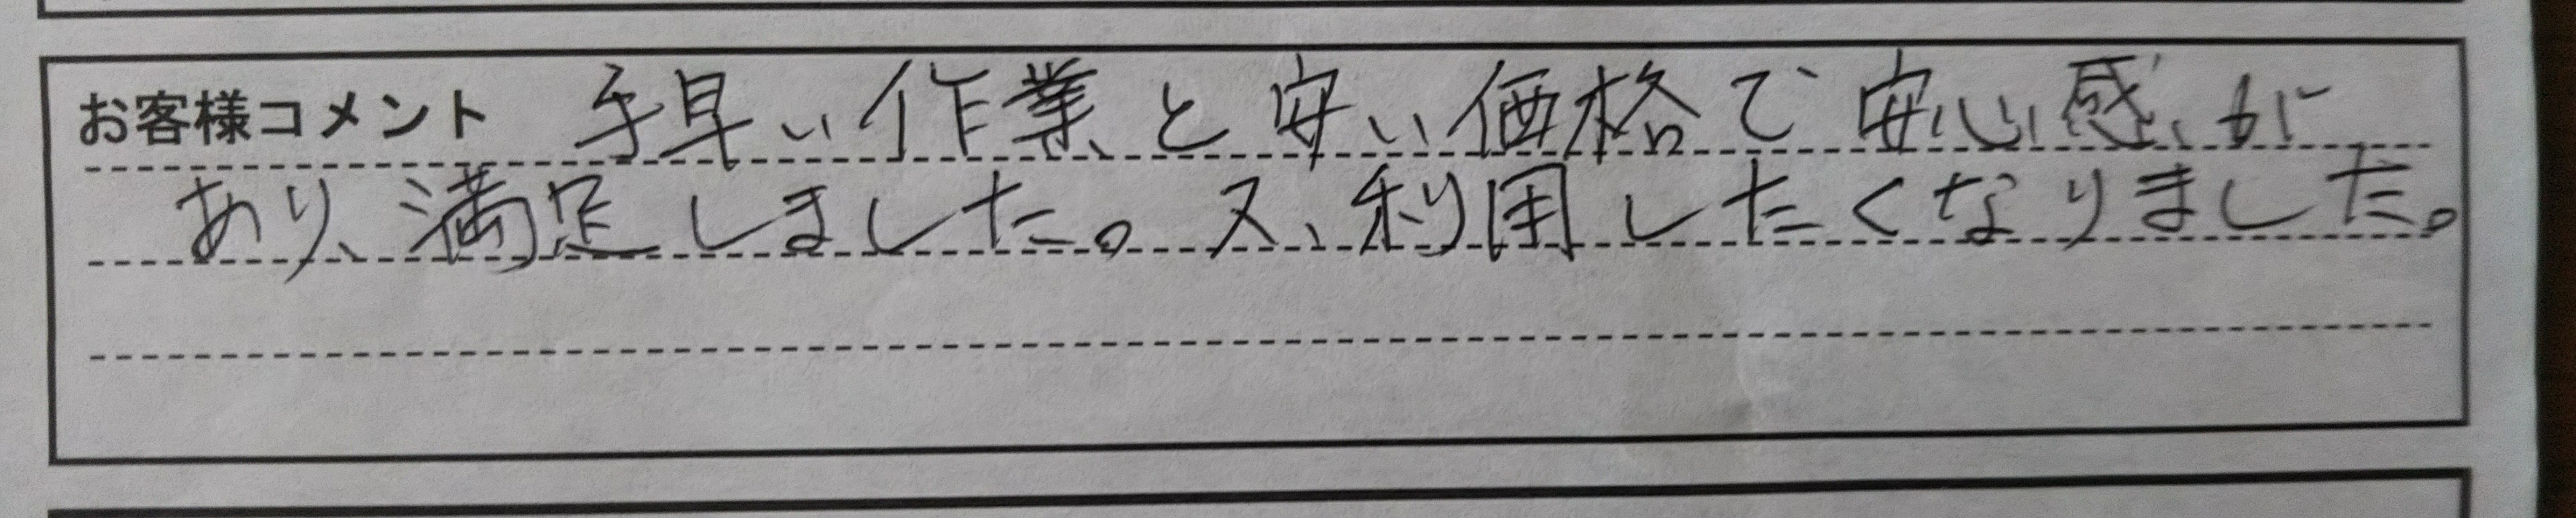 お客様コメント 手早い作業と安い価格で安心感が
あり、満足しました。又、利用したくなりました。